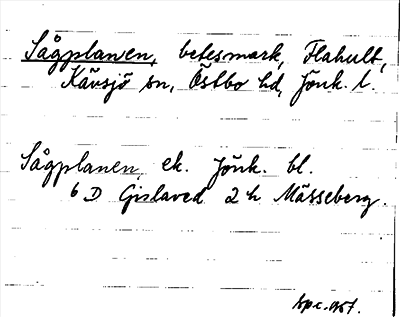 Sågplanen, betesmark, Flahult,
Kävsjö sn, Östbo hd, Jönk. l.
Sågplanen, ek. Jönk. bl.
6 D Gislaved 2 h Mässeberg.